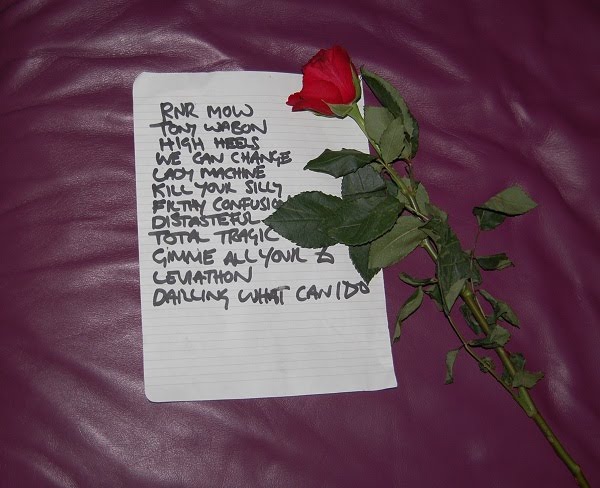 RNR MOW
TONY WABON
HIGH HEELS
WE CAN CHANGE
LADY MACHINE
KILL YOUR SILLY
FILTHY CONFUSIO
DISTASTEFUL
TOTAL TRAGIC
GIMME ALL YOUR
LEVIATHON
DARLING WHAT CAN I DO